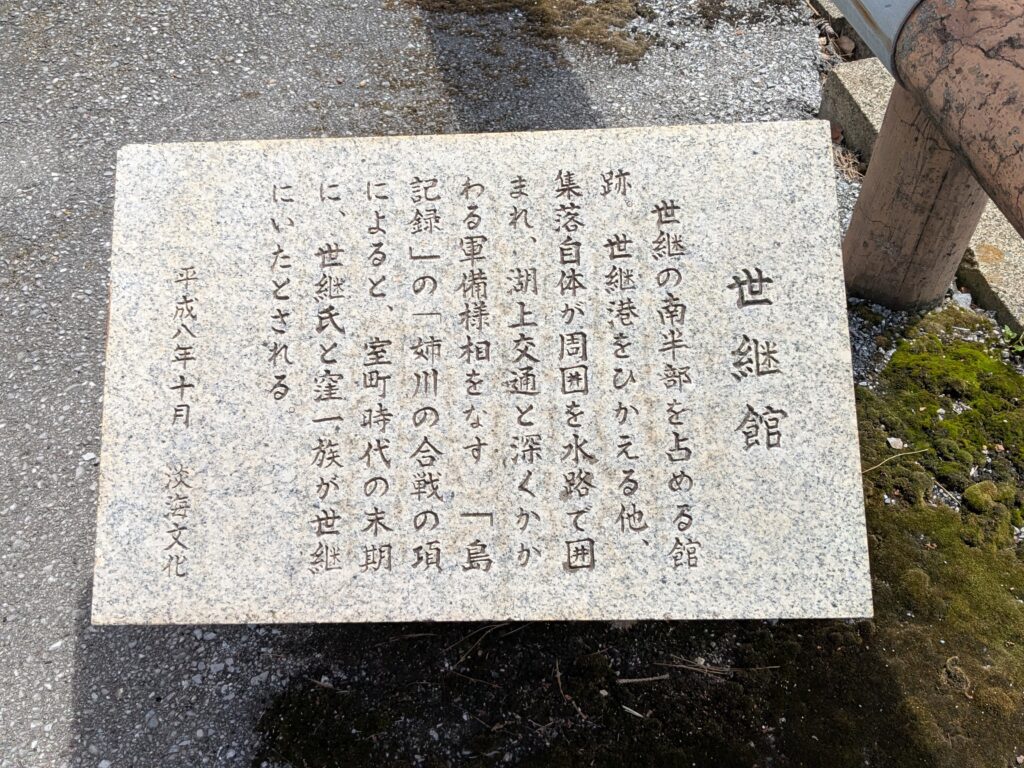 世継館
世継の南半部を占める館
跡。世継港をひかえる他、
集落自体が周囲を水路で囲
まれ、湖上交通と深くかか
わる軍備様相をなす「島
記録」の「姉川の合戦の項
によると、室町時代の末期
に、世継氏と窪一族が世継
にいたとされる。
平成八年十月 淡海文化